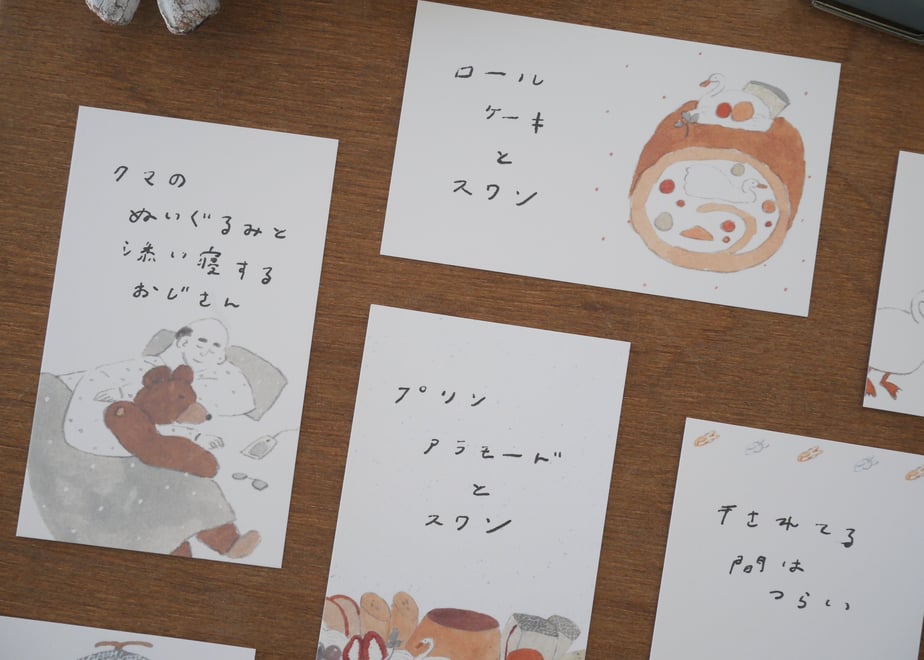 ロール
ケーキ
と
スワン
クマの
ぬいぐるみと
添い寝する
おじさん
プリン
アラモード
と
スワン
干されてる
間は
つらい